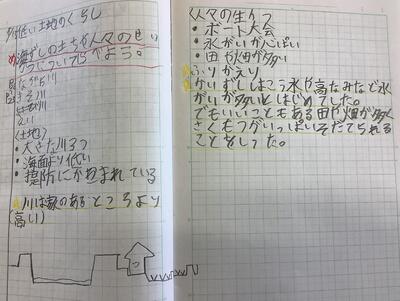 低い土地のくらし
海ずしの土ちや人々のせい
かつについてしらべよう。
ながら川
きそ川
いび川
<土地>
・大きな川3つ
・海面より低い
・堤防にかこまれている
川は家のあるところより
(高い)
<人々の生かつ>
・ボート大会
・水がいが心ぱい
・田や畑が多い
ふりかえり
かいずしはこう水や高なみなど水
がいが多いとはじめてした。
でもいいこともある田や畑が多く
さくもつがいっぱいそだてられる
ことをしった。